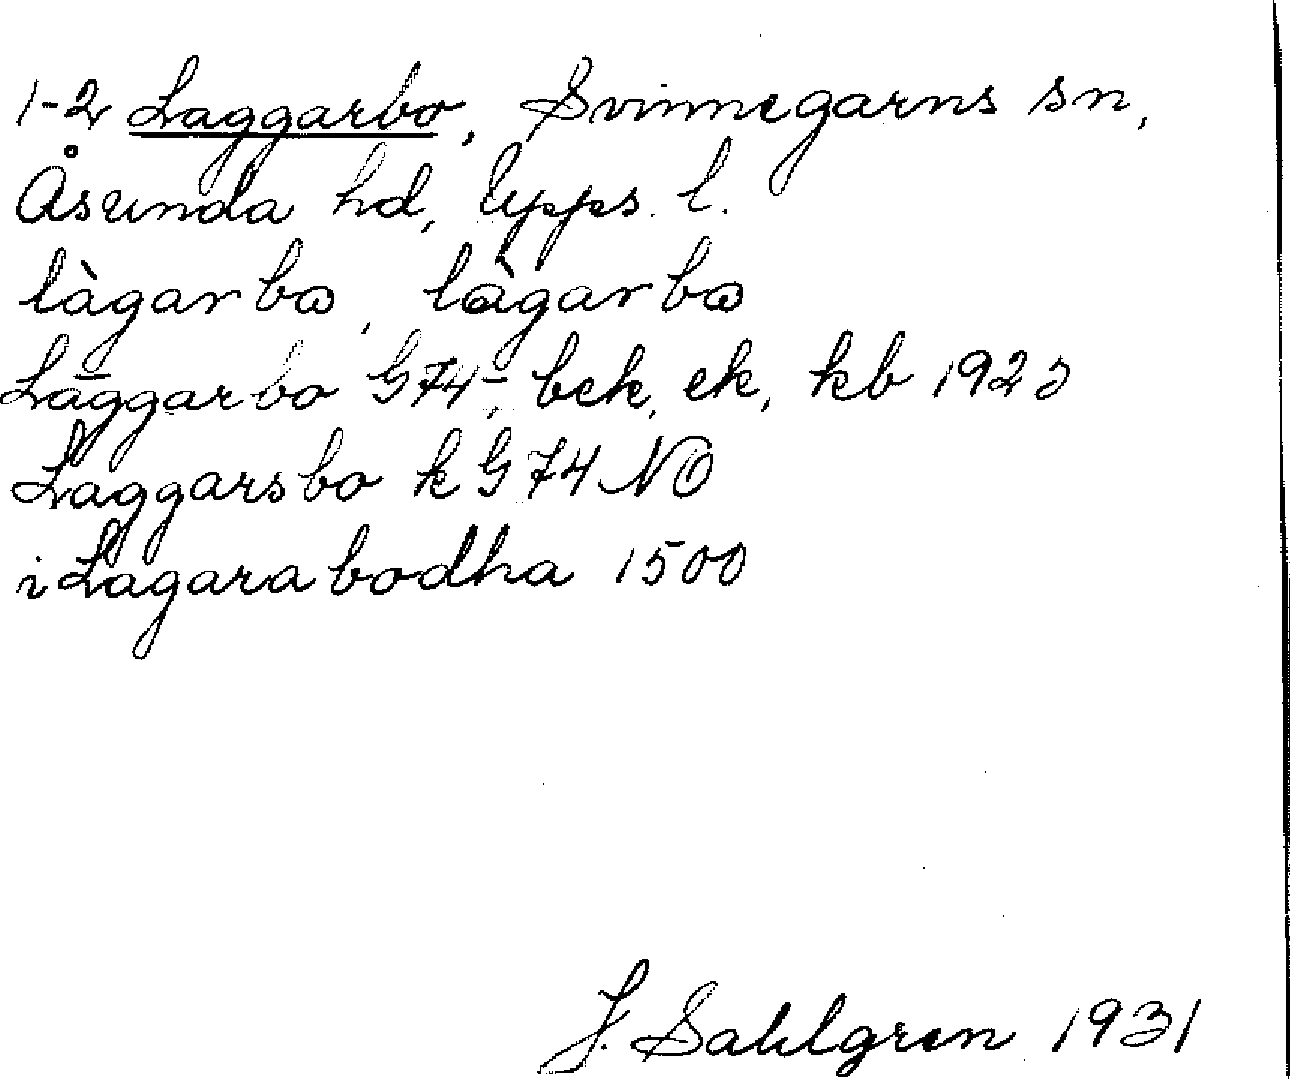 1-2 Laggarbo, Svinnegarns sn,
Åsunda hd, Upps. l.
làgarbω, làgarbω
Laggarbo G74-, bek, ek, kb 1923
Laggarsbo k G74 NO
i Lagarabodha 1500
J. Sahlgren 1931